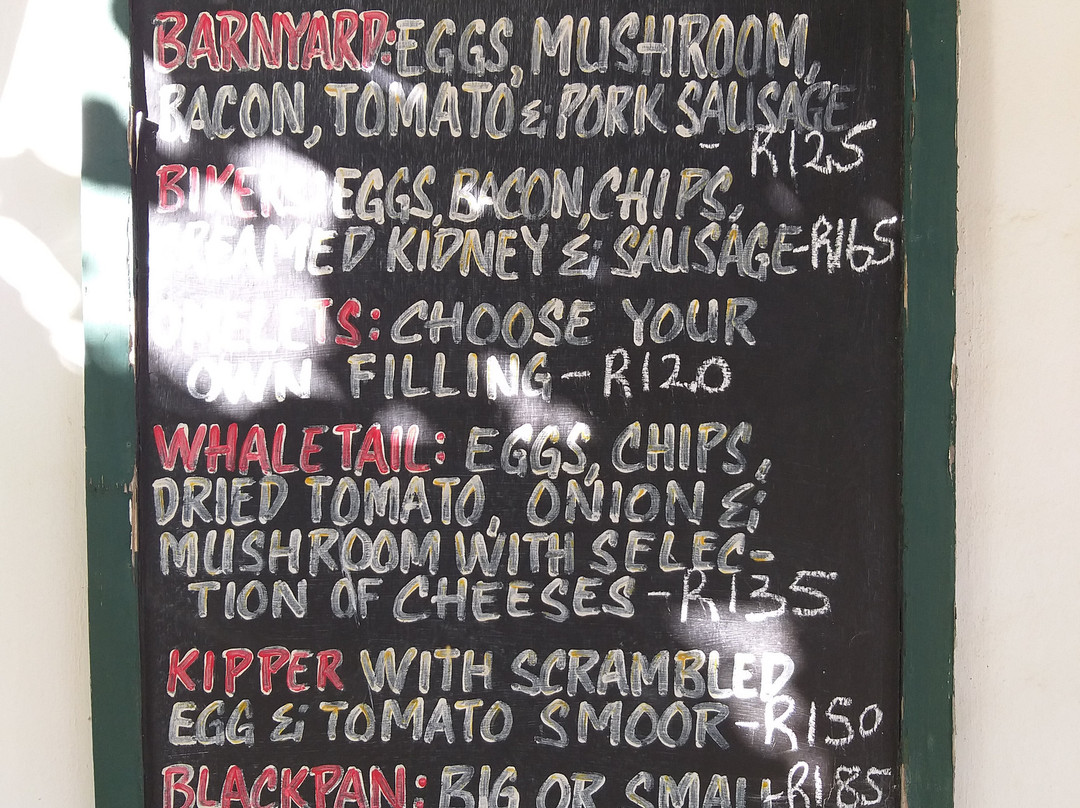 BARNYARD: EGGS, MUSHROOM,
BACON, TOMATO & PORK SAUSAGE
- R125
BIKERS: EGGS, BACON, CHIPS,
CREAMED KIDNEY & SAUSAGE-R165
OMELETS: CHOOSE YOUR
OWN FILLING-R120
WHALETAIL: EGGS, CHIPS,
DRIED TOMATO, ONION &
MUSHROOM WITH SELEC-
TION OF CHEESES-R135
KIPPER WITH SCRAMBLED
EGG & TOMATO SMOOR-R150
BLACKPAN: BIG OR SMALL-R185